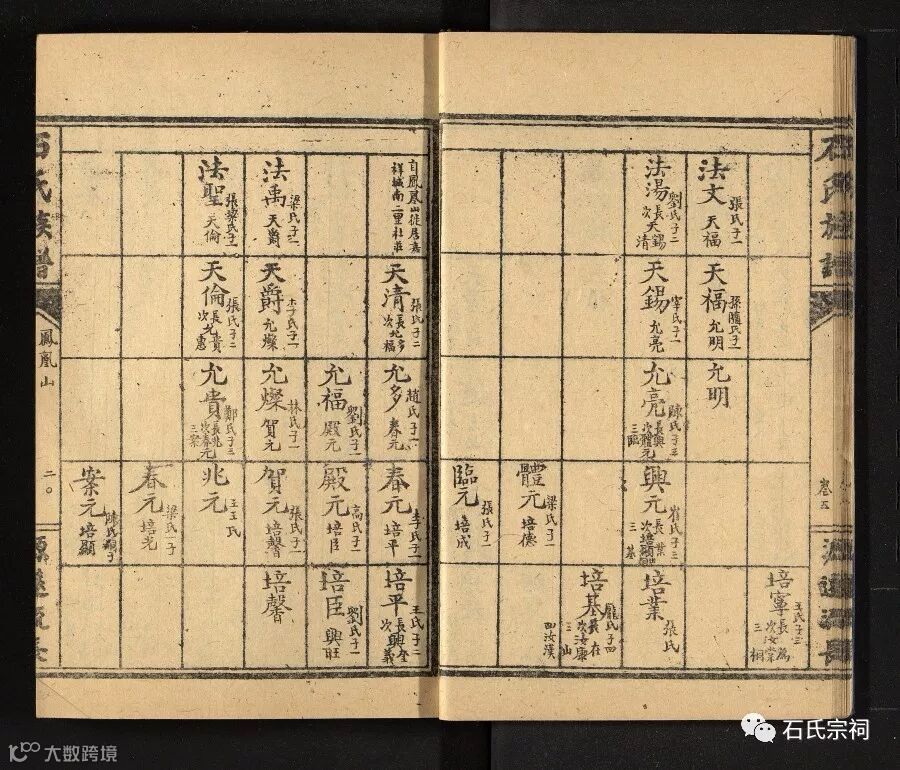 石氏族譜
卷五
源遠流長
法文 張氏子一 天福
法湯 劉氏子二 長天錫 次天清
天福 孫龐氏子一 允明
天錫 宰氏子一 允亮
允明
允亮 陳氏子三 長興 次體元 三臨
興元 崔氏子三 長業 次培顯 三基
體元 梁氏子一 培德
臨元 張氏子一 培成
培寧 王氏子三 長為 次汝棠 三桐
培業 張氏
培基 龐氏子四 長在 次汝康 三山 四汝漢
自鳳凰山徙居嘉
祥城南二里杜莊
法禹 梁氏子一 天爵
法聖 張黎氏子一 天倫
天清 張氏子二 長允多 次福
天爵 李氏子一 允燦
天倫 張氏子二 長允貴 次惠
允多 趙氏子一 春元
允福 劉氏子一 殿元
允燦 林氏子一 賀元
允貴 鄭氏子三 長兆 次春元 三案
春元 李氏子一 培平
殿元 高氏子一 培臣
賀元 張氏子一 培馨
兆元 王王氏
春元 梁氏一子 培光
案元 陳氏子 培顯
培平 王氏子二 長興全 次義
培臣 劉氏子一 興旺
培馨
石氏族譜
鳳凰山
二〇
源遠流長
石氏宗祠
大数跨境